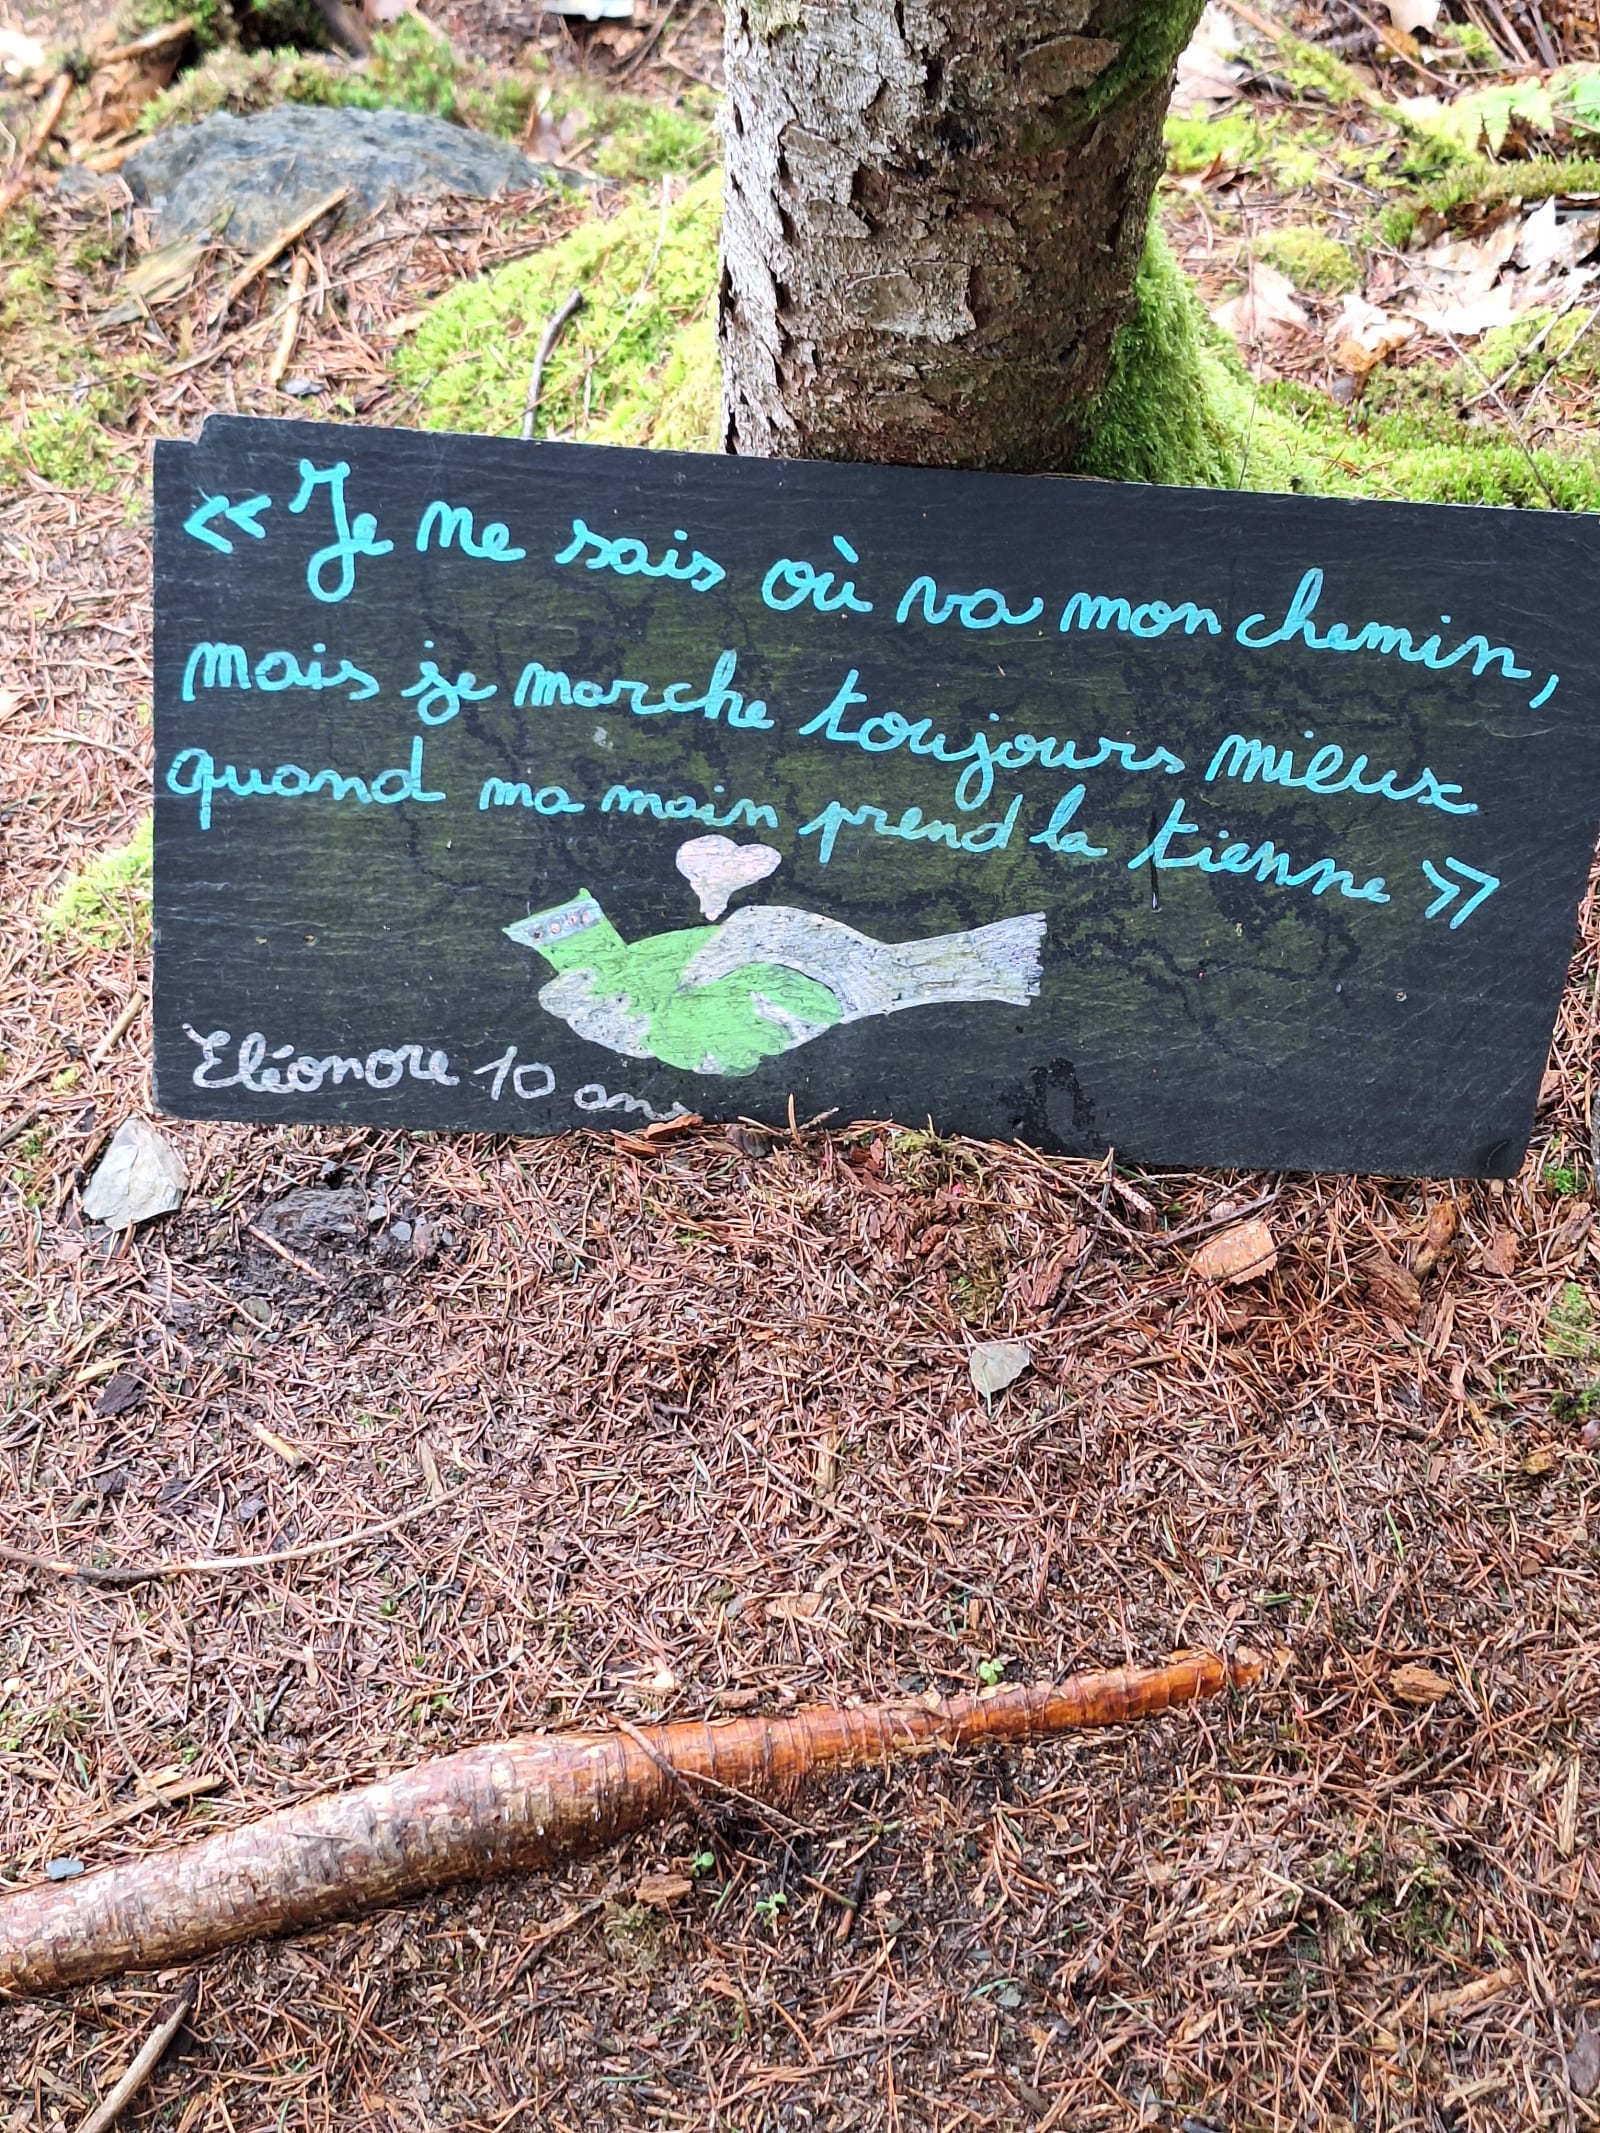 « Je ne sais où va mon chemin,
mais je marche toujours mieux
quand ma main prend la tienne »
Eléonore 10 ans